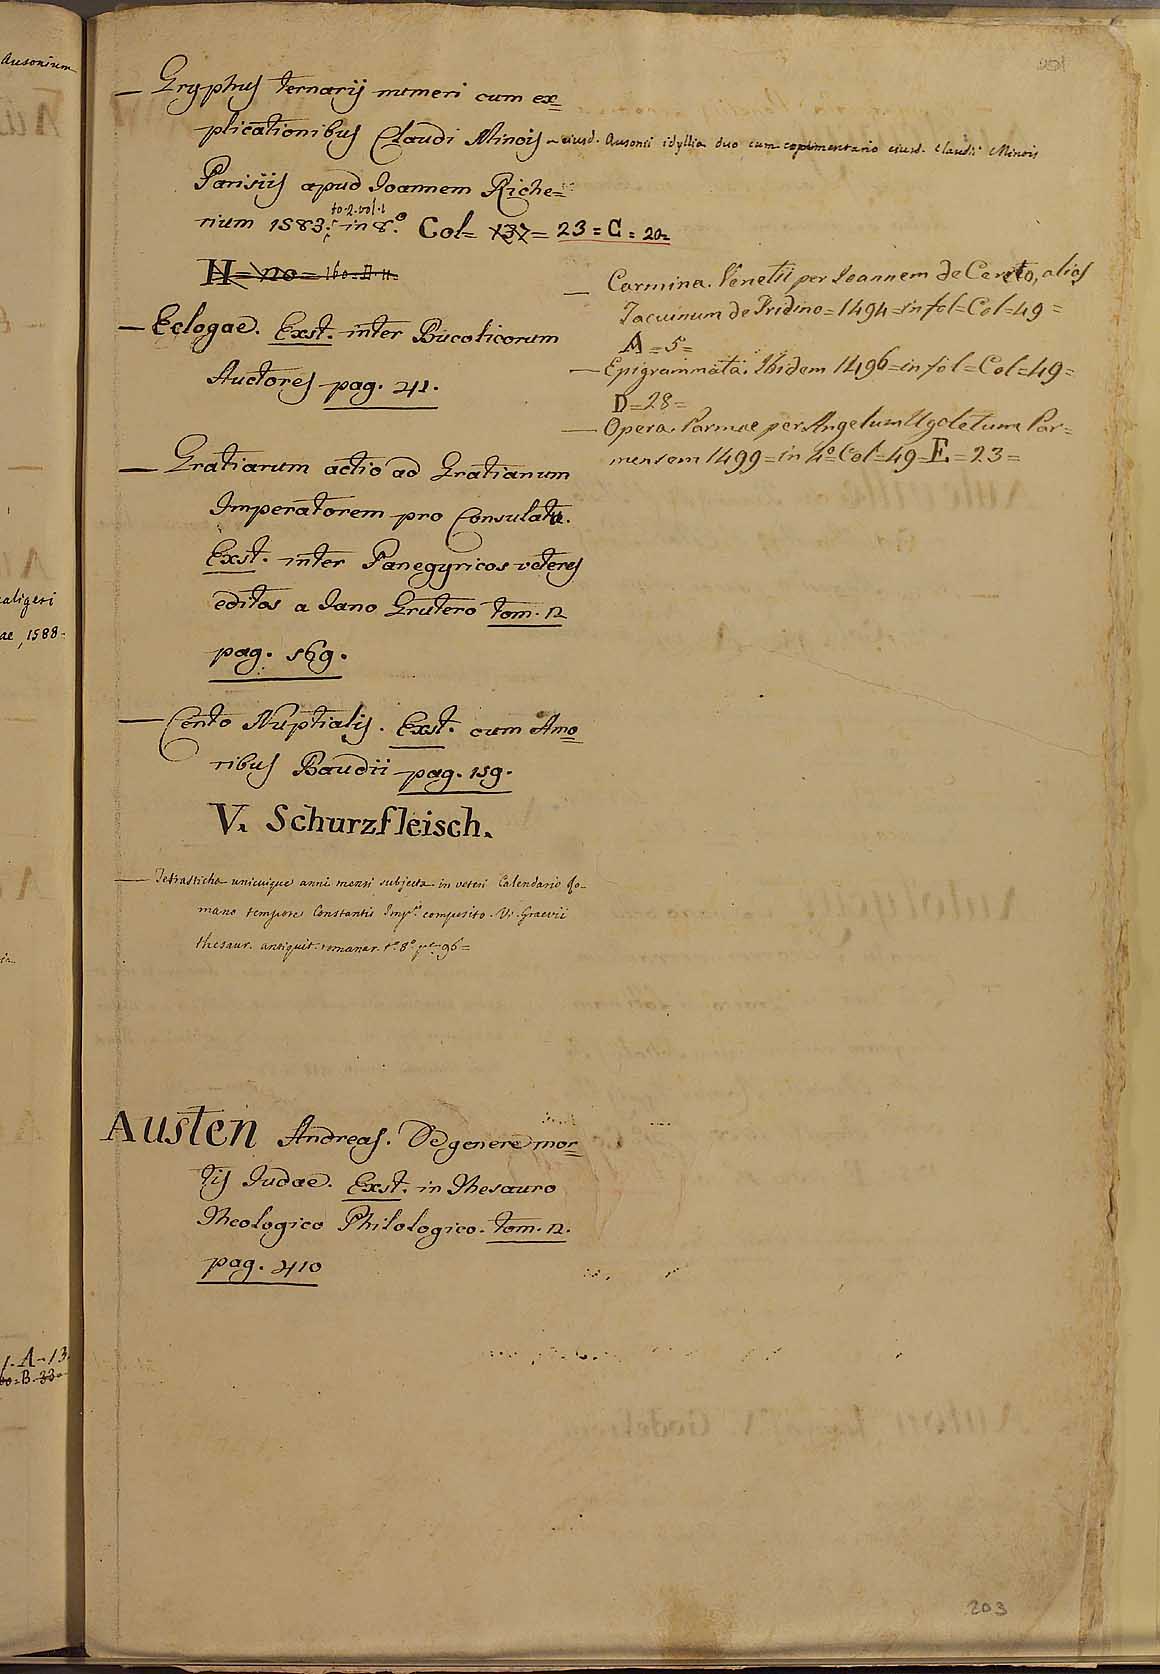 Ausonium
— Gryphus ternarij numeri cum ex=
plicationibus Claudi Minois – eiusd. Ausonii idyllia duo cum commentario eiusd. Claudii Minois
Parisiis apud Joannem Riche=
rium 1583. in 8.º Col= 137= 23 = C = 20=
to. 2. vol. 1
H = no = 160 = D = 11
— Eclogae. Exst. inter Bucolicorum
Auctores pag. 41.
— Gratiarum actio ad Gratianum
Imperatorem pro Consulatu.
Exst. inter Panegyricos veteres
editos a Jano Grutero tom. 2
pag. 569.
— Cento Nuptialis. Exst. cum Amo=
ribus Baudii pag. 159.
V. Schurzfleisch.
— Tetrasticha unicuique anni mensi subjecta in veteri Calendario Ro-
mano tempore Constantis Imp. composito. V. Graevii
thesaur. antiquit. romanar. tº 8º pº 96=
— Carmina. Venetii per Joannem de Cereto, alias
Tacuinum de Tridino = 1494 = in fol = Col = 49 =
A = 5 =
— Epigrammata. Ibidem 1496 = in fol = Col = 49 =
D = 28 =
— Opera. Parmae per Angelum Ugoletum Par=
mensem 1499 = in 4º Col = 49 = E = 23 =
Austen Andreas. De genere mor=
tis Judae. Exst. in Thesauro
Theologico Philologico. tom. 2.
pag. 410
aligeri
ae, 1588.
1. A = 13
B. 33
203